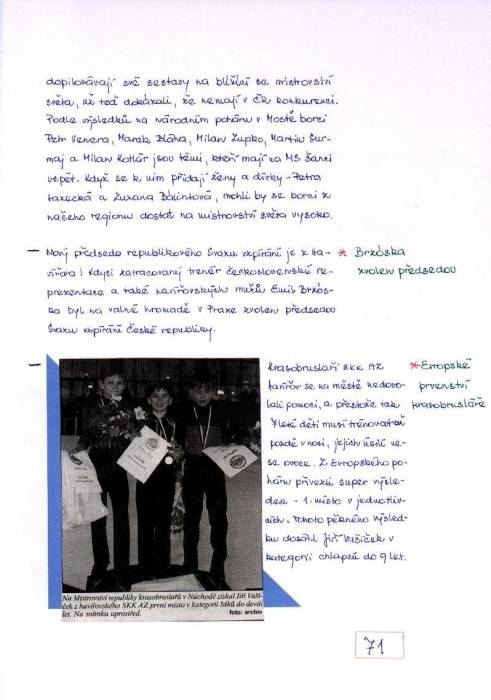 dopilovávají své sestavy na blížící se mistrovství
světa, už teď dokázali, že nemají v ČR konkurenci.
Podle výsledků na národním poháru v Mostě borci
Petr Venera, Marek Bláha, Milan Župko, Martin Šur-
maj a Milan Kotlár jsou těmi, kteří mají na MS šanci
uspět. Když se k nim přidají ženy a dívky - Petra
a Zuzana Bálintová, mohli by se borci z
našeho regionu dostat na mistrovství světa vysoko.
Nový předseda republikového Svazu vzpírání je z Ha-
vířova! Kdysi zatracovaný trenér československé re-
prezentace a také havířovských mužů Emil Brzós-
ka byl na valné hromadě v Praze zvolen předsedou
Svazu vzpírání České republiky.
* Brzóska
zvolen předsedou
Krasobruslaři SKK AZ
Havířov se na městě nedovo-
lali pomoci, a přestože tak
7leté děti musí trénovat
pozdě v noci, jejich úsilí ne-
se ovoce. Z Evropského po-
háru přivezli super výsle-
dek - 1. místo v jednotliv-
cích. Tohoto pěkného výsled-
ku dosáhl Jiří Vašíček v
kategorii chlapců do 9 let.
* Evropské
prvenství
krasobruslaře
Na Mistrovství republiky krasobruslařů v Náchodě získal Jiří Vaší-
ček z havířovského SKK AZ první místo v kategorii žáků do devíti
let. Na snímku uprostřed. foto: archiv
71